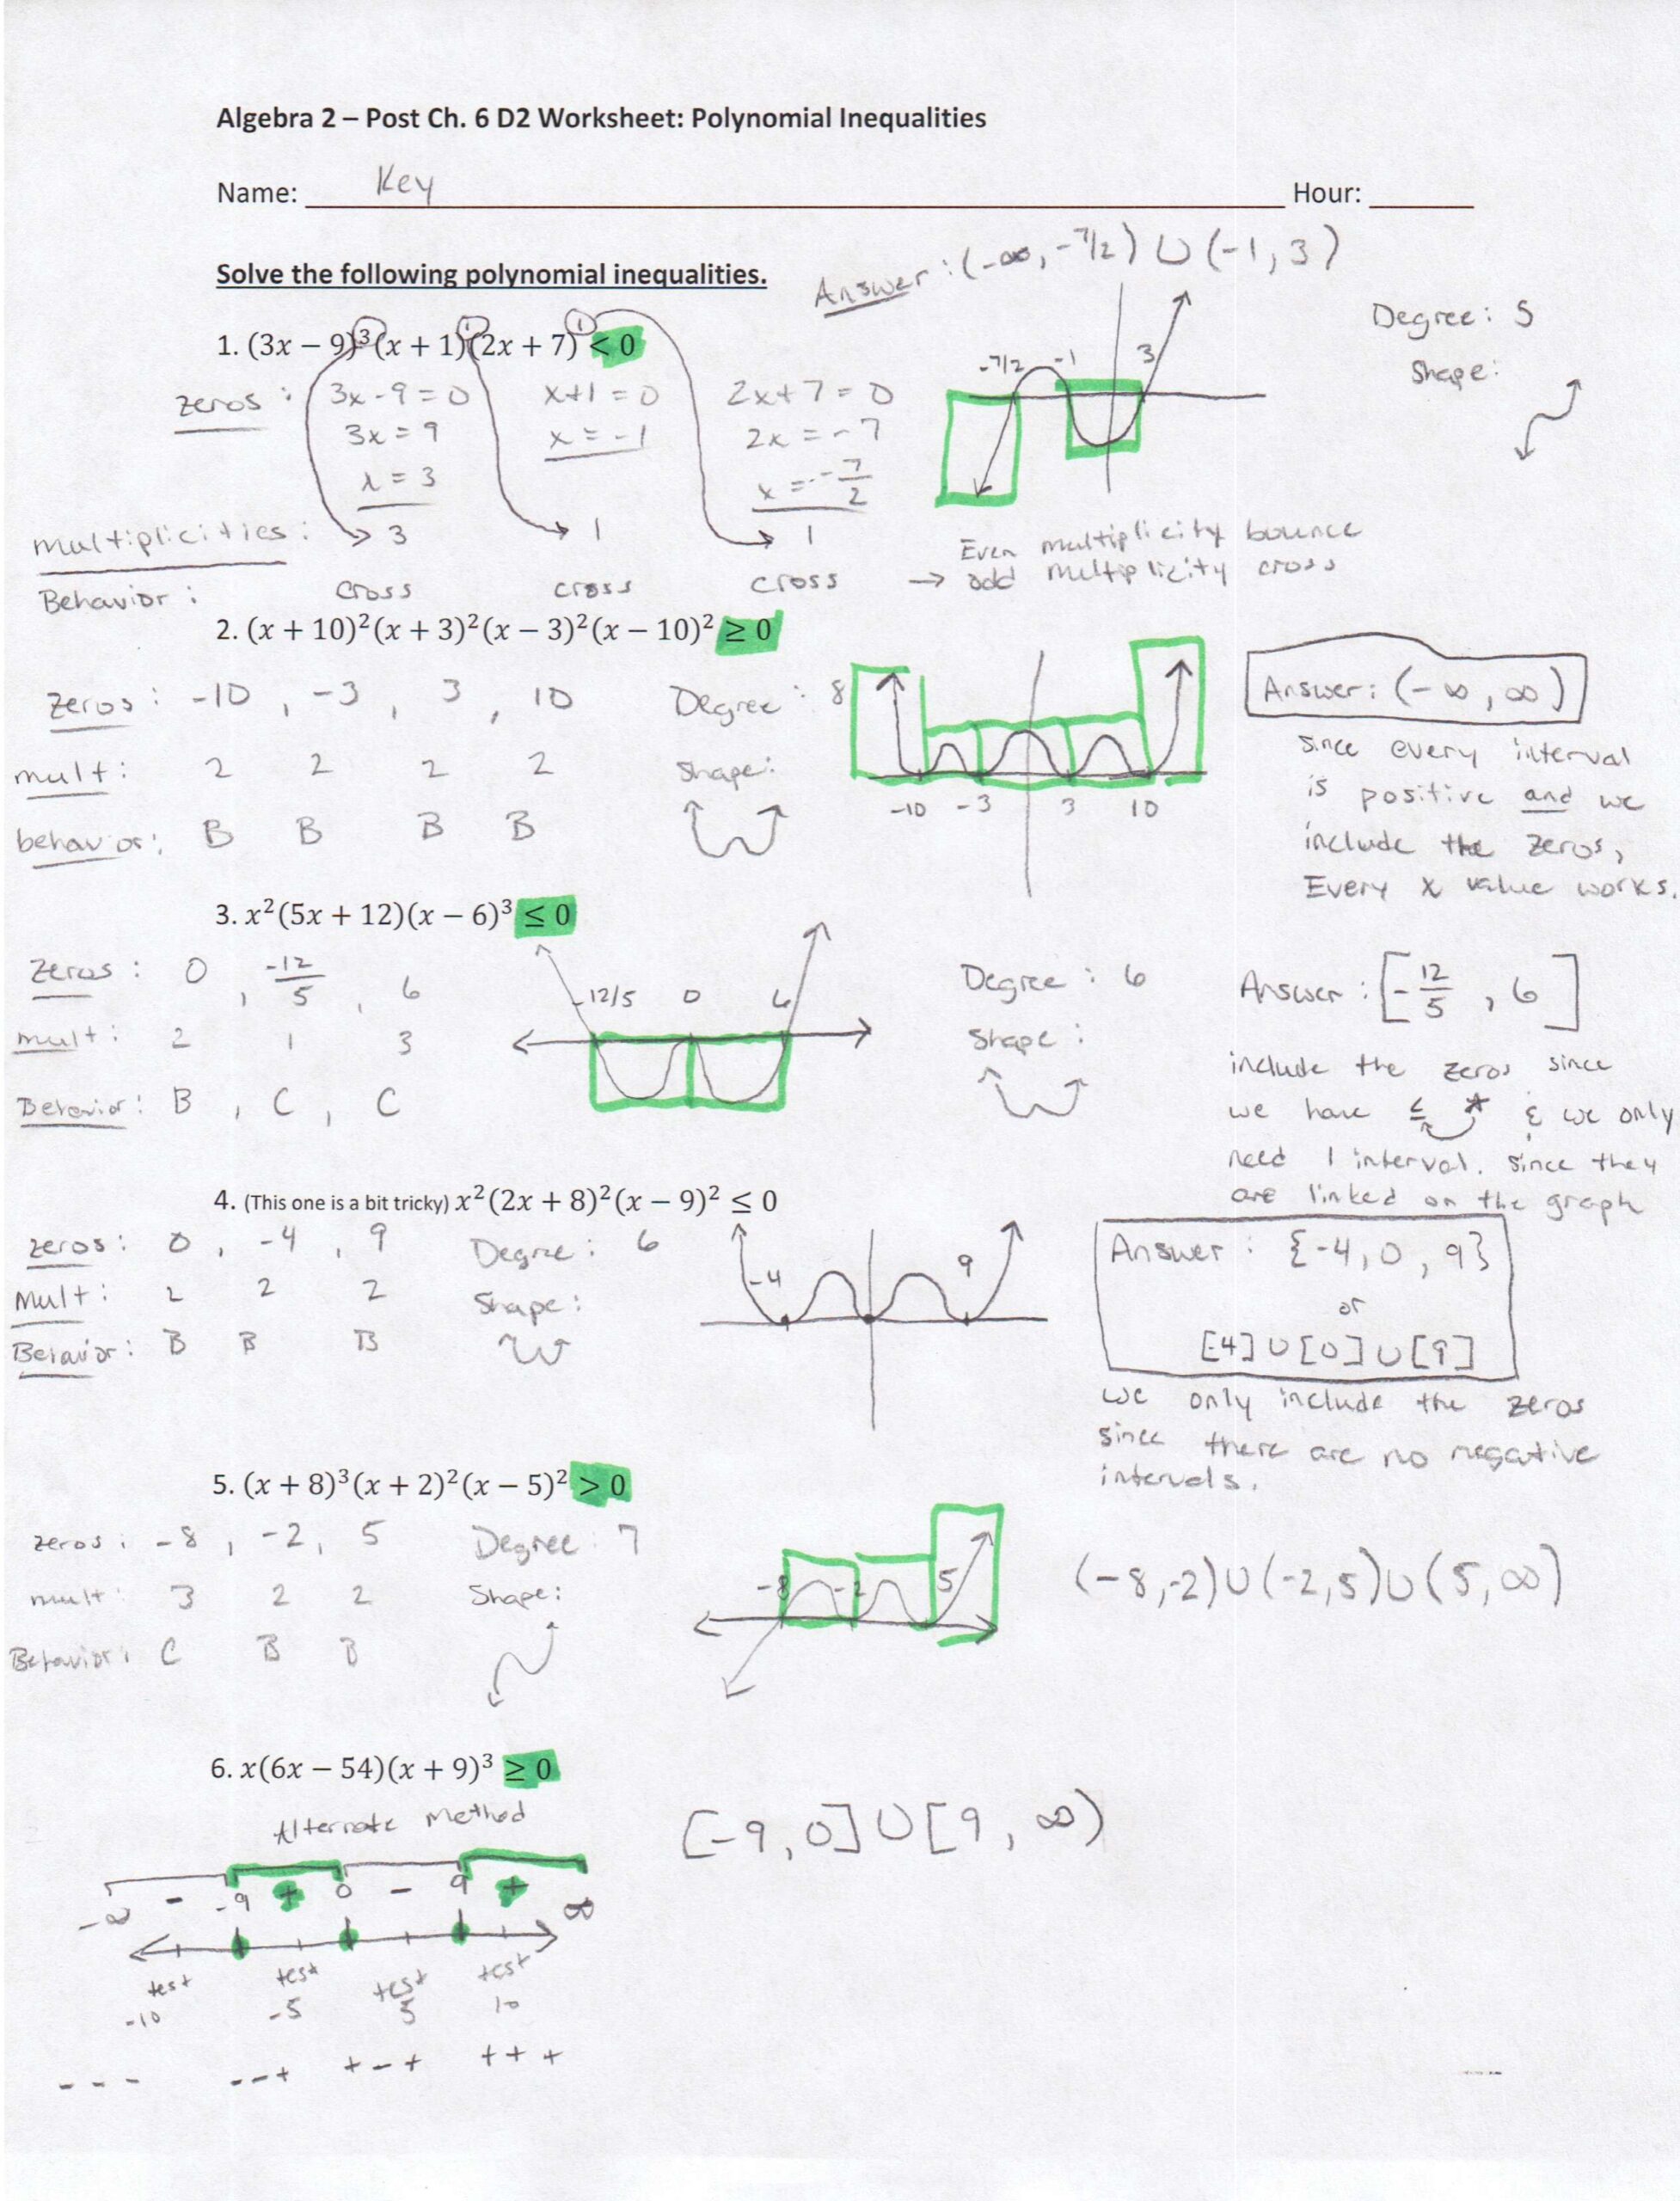 Algebra 2 – Post Ch. 6 D2 Worksheet: Polynomial Inequalities
Name: Key Hour:
Solve the following polynomial inequalities.
Answer: (-∞, -7/2) ∪ (-1, 3)
1. (3x − 9)³(x + 1)¹(2x + 7)¹ < 0
Degree: 5
Shape:
zeros: 3x-9=0 x+1=0 2x+7=0
3x=9 x=-1 2x=-7
x=3 x=-7/2
-7/2 -1 3
multiplicities: 3 1 1
Behavior: cross cross cross
Even multiplicity bounce
→ odd multiplicity cross
2. (x + 10)²(x + 3)²(x − 3)²(x − 10)² ≥ 0
zeros: -10, -3, 3, 10 Degree: 8
mult: 2 2 2 2 Shape:
behavior: B B B B
-10 -3 3 10
Answer: (-∞, ∞)
Since every interval
is positive and we
include the zeros,
Every x value works.
3. x²(5x + 12)(x − 6)³ ≤ 0
zeros: 0, -12/5, 6
mult: 2 1 3
Behavior: B, C, C
-12/5 0 6
Degree: 6
Shape:
Answer: [-12/5, 6]
include the zeros since
we have ≤ * & we only
need 1 interval. Since they
are linked on the graph
4. (This one is a bit tricky) x²(2x + 8)²(x − 9)² ≤ 0
zeros: 0, -4, 9 Degree: 6
Mult: 2 2 2 Shape:
Behavior: B B B
-4 9
Answer: {-4, 0, 9}
or
[-4] ∪ [0] ∪ [9]
we only include the zeros
since there are no negative
intervals.
5. (x + 8)³(x + 2)²(x − 5)² > 0
zeros: -8, -2, 5 Degree: 7
mult: 3 2 2 Shape:
Behavior: C B B
-8 -2 5
(-8,-2)∪(-2,5)∪(5,∞)
6. x(6x − 54)(x + 9)³ ≥ 0
Alternate Method
[-9, 0] ∪ [9, ∞)
-∞ - -9 + 0 - 9 + ∞
test test test test
-10 -5 5 10
- - - - - + + - + + + +